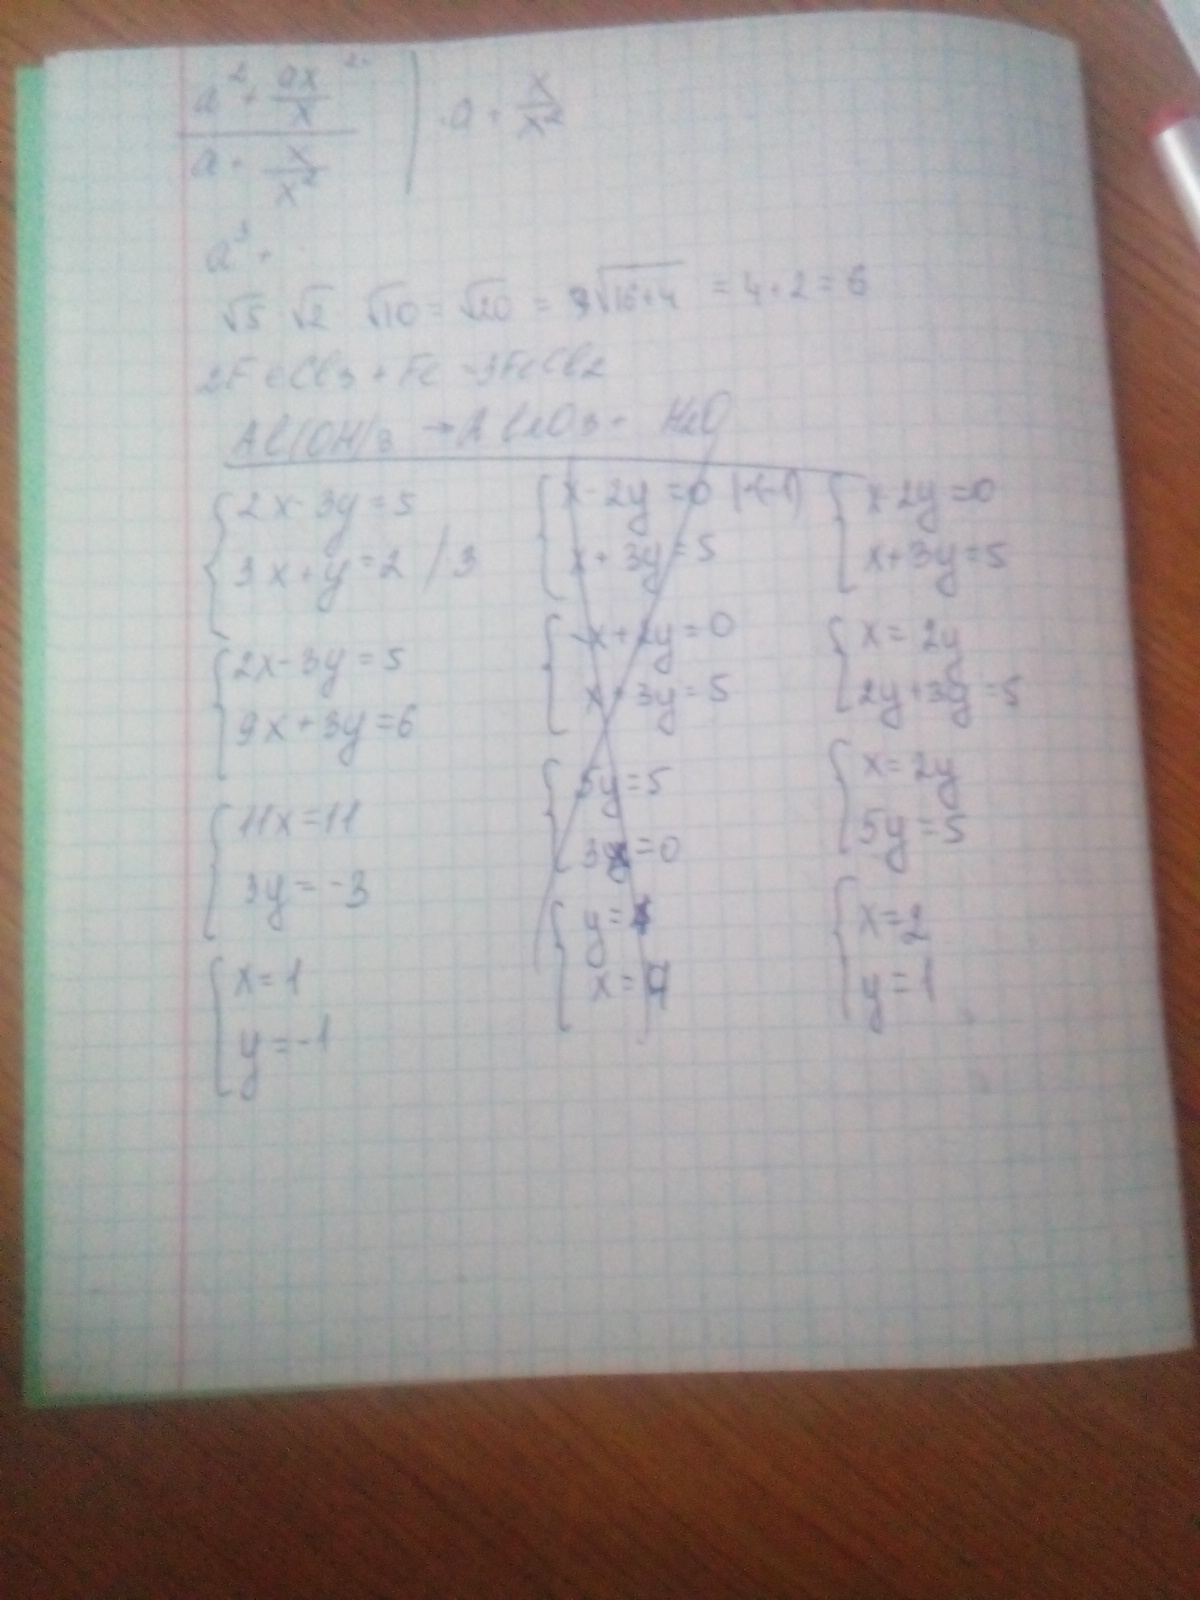 a² + ax/x
a · x/x²
a · x/x²
a³ ·
√5 √2 √10 = √20 = √16+4 = 4+2=6
2FeCl3 + Fe - 3FeCl2
Al(OH)3 → Al2O3 + H2O
2x-3y=5
3x+y=2 /3
2x-3y=5
9x+3y=6
11x=11
3y=-3
x=1
y=-1
x-2y=0 |·(-1)
x+3y=5
-x+2y=0
x+3y=5
5y=5
3x=0
y=1
x=
x-2y=0
x+3y=5
x=2y
2y+3y=5
x=2y
5y=5
x=2
y=1